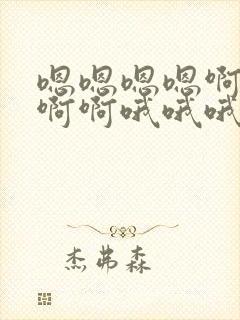 嗯嗯嗯嗯啊
啊啊哦哦哦
杰弗森